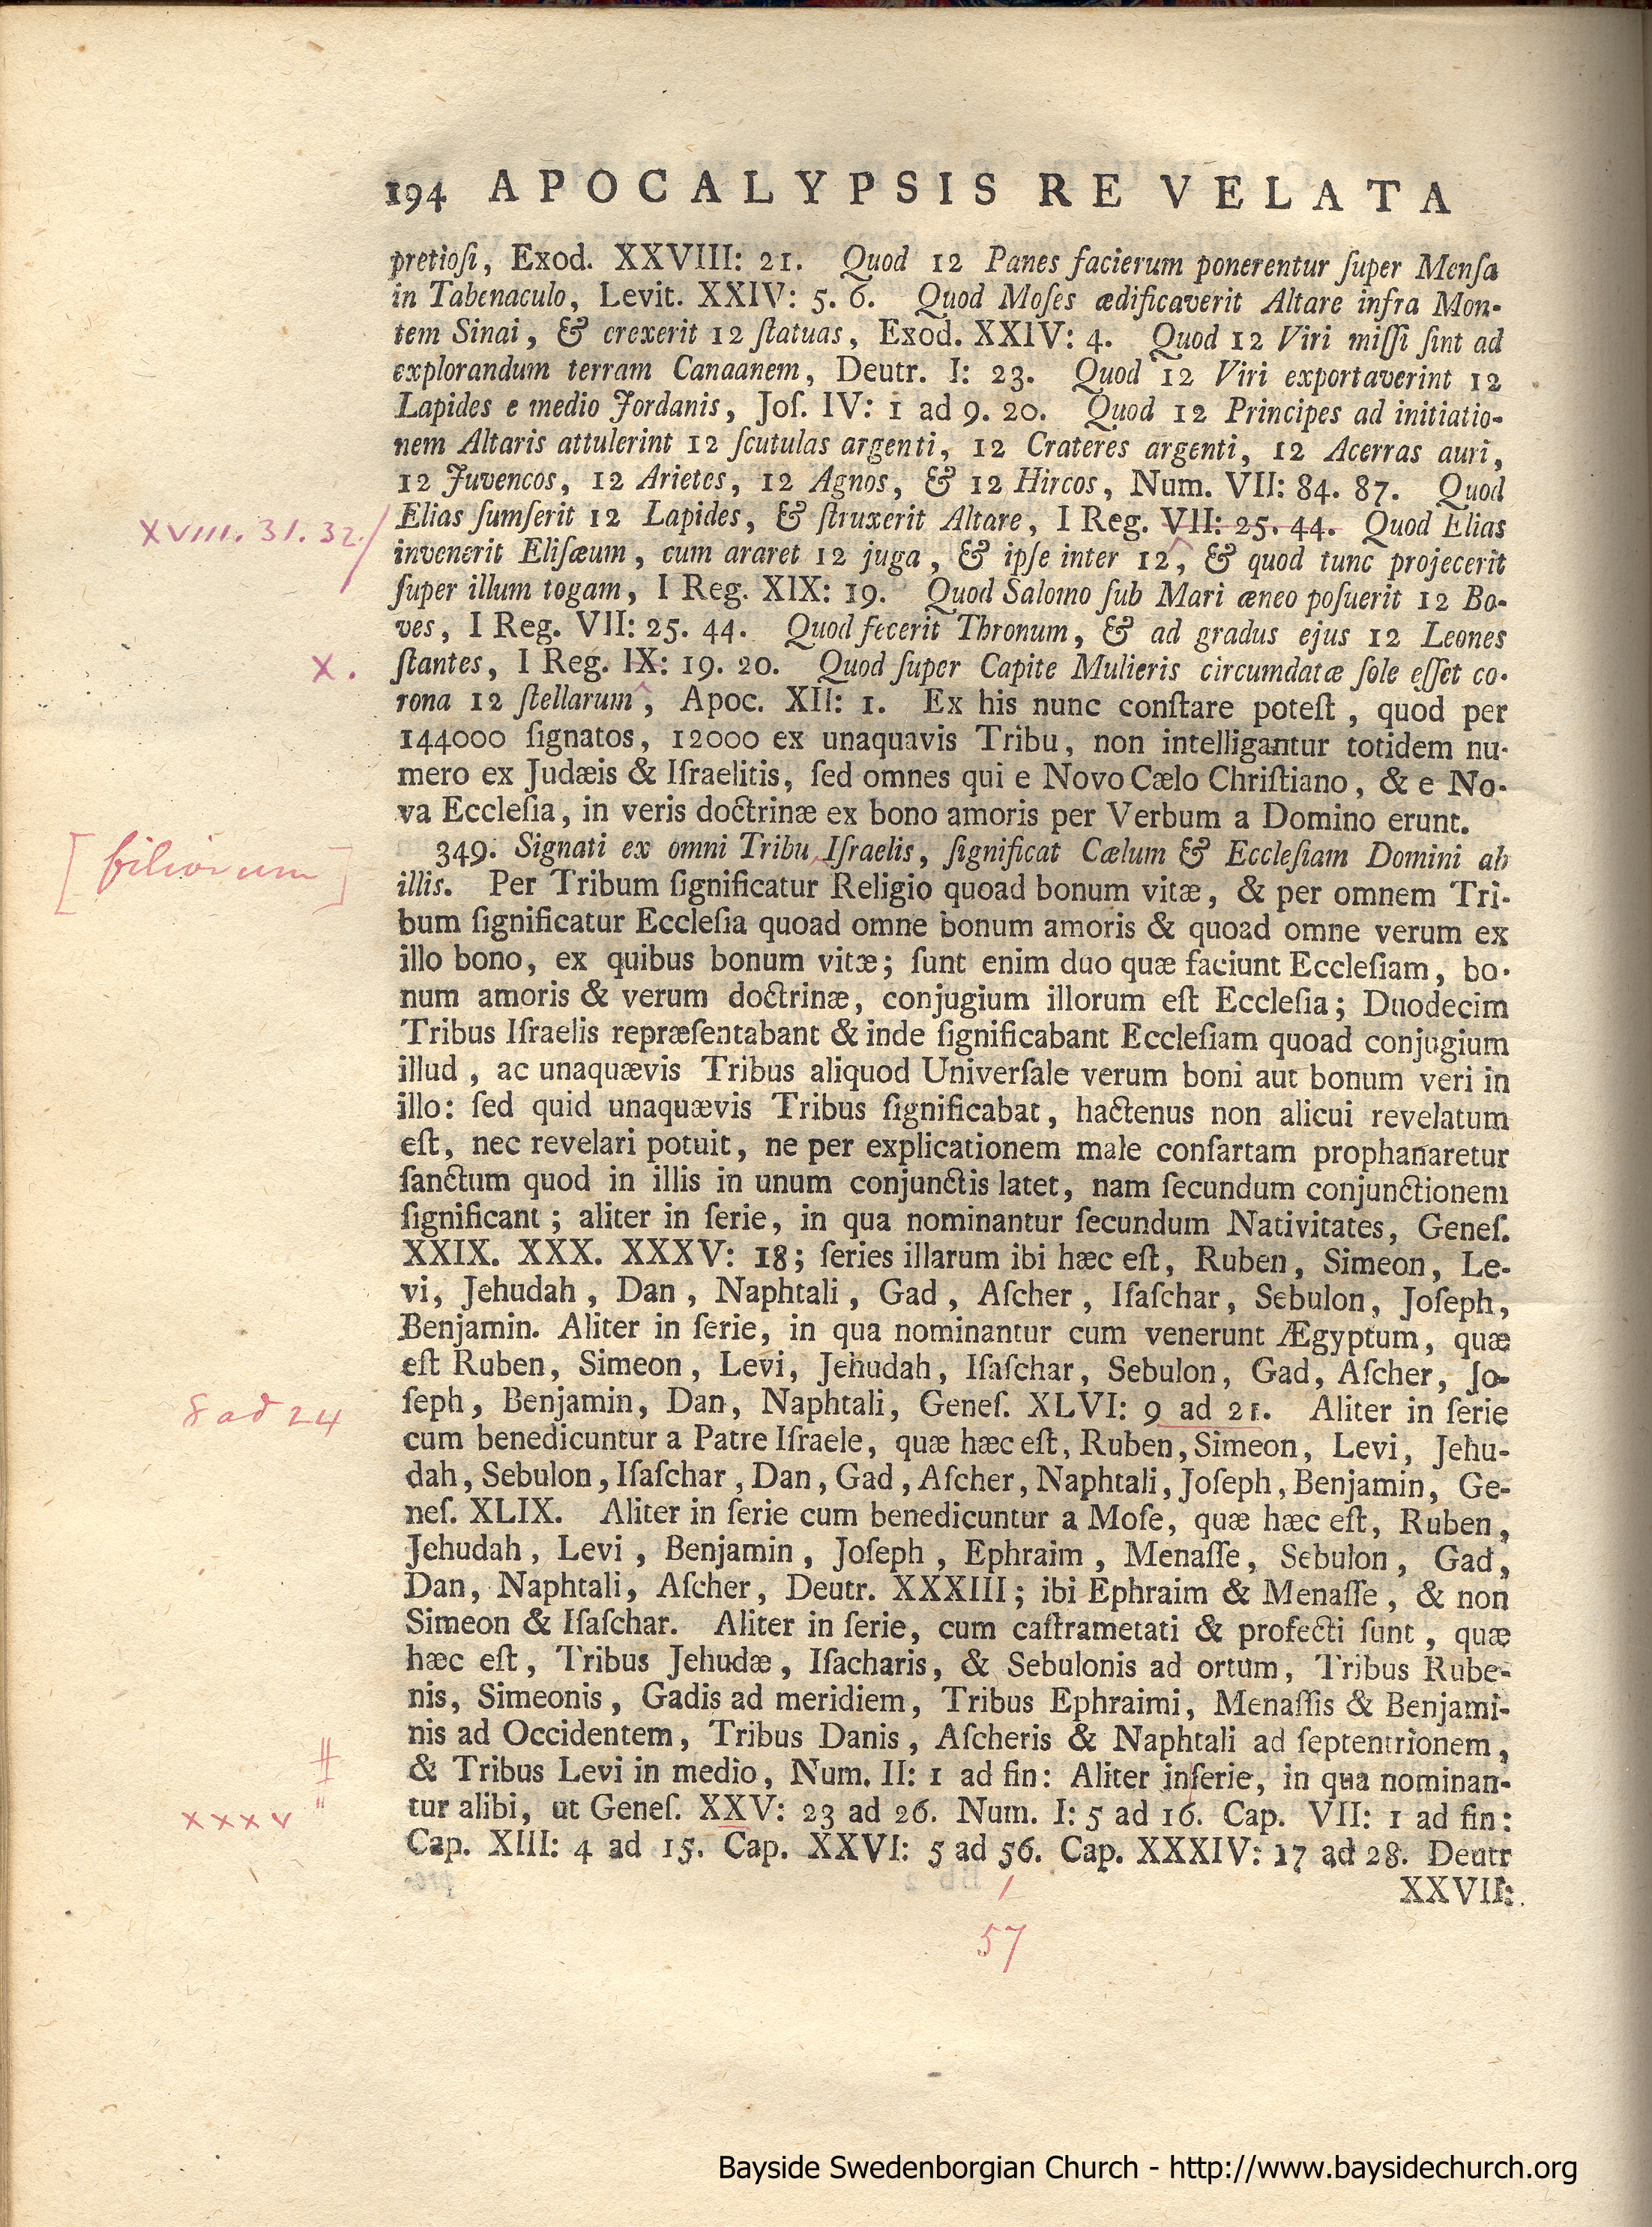 194 APOCALYPSIS REVELATA
pretioſi, Exod. XXVIII: 21. Quod 12 Panes facierum ponerentur ſuper Menſa
in Tabenaculo, Levit. XXIV: 5. 6. Quod Moſes ædificaverit Altare infra Mon-
tem Sinai, & crexerit 12 ſtatuas, Exod. XXIV: 4. Quod 12 Viri miſſi ſint ad
explorandum terram Canaanem, Deutr. I: 23. Quod 12 Viri exportaverint 12
Lapides e medio Jordanis, Joſ. IV: 1 ad 9. 20. Quod 12 Principes ad initiatio-
nem Altaris attulerint 12 ſcutulas argenti, 12 Crateres argenti, 12 Acerras auri,
12 Juvencos, 12 Arietes, 12 Agnos, & 12 Hircos, Num. VII: 84. 87. Quod
XVIII. 31. 32. / Elias ſumſerit 12 Lapides, & ſtruxerit Altare, I Reg. VII: 25. 44. Quod Elias
invenerit Eliſæum, cum araret 12 juga, & ipſe inter 12, & quod tunc projecerit
ſuper illum togam, I Reg. XIX: 19. Quod Salomo ſub Mari æneo poſuerit 12 Bo-
ves, I Reg. VII: 25. 44. Quod fecerit Thronum, & ad gradus ejus 12 Leones
X. ſtantes, I Reg. IX: 19. 20. Quod ſuper Capite Mulieris circumdatæ ſole eſſet co-
rona 12 ſtellarum, Apoc. XII: 1. Ex his nunc conſtare poteſt, quod per
144000 ſignatos, 12000 ex unaquavis Tribu, non intelligantur totidem nu-
mero ex Judæis & Iſraelitis, ſed omnes qui e Novo Cælo Chriſtiano, & e No-
va Eccleſia, in veris doctrinæ ex bono amoris per Verbum a Domino erunt.
[filiorum] 349. Signati ex omni Tribu Iſraelis, ſignificat Cælum & Eccleſiam Domini ab
illis. Per Tribum ſignificatur Religio quoad bonum vitæ, & per omnem Tri-
bum ſignificatur Eccleſia quoad omne bonum amoris & quoad omne verum ex
illo bono, ex quibus bonum vitæ; ſunt enim duo quæ faciunt Eccleſiam, bo-
num amoris & verum doctrinæ, conjugium illorum eſt Eccleſia; Duodecim
Tribus Iſraelis repræſentabant & inde ſignificabant Eccleſiam quoad conjugium
illud, ac unaquævis Tribus aliquod Univerſale verum boni aut bonum veri in
illo: ſed quid unaquævis Tribus ſignificabat, hactenus non alicui revelatum
eſt, nec revelari potuit, ne per explicationem male conſartam prophanaretur
ſanctum quod in illis in unum conjunctis latet, nam ſecundum conjunctionem
ſignificant; aliter in ſerie, in qua nominantur ſecundum Nativitates, Geneſ.
XXIX. XXX. XXXV: 18; ſeries illarum ibi hæc eſt, Ruben, Simeon, Le-
vi, Jehudah, Dan, Naphtali, Gad, Aſcher, Iſaſchar, Sebulon, Joſeph,
Benjamin. Aliter in ſerie, in qua nominantur cum venerunt Ægyptum, quæ
eſt Ruben, Simeon, Levi, Jehudah, Iſaſchar, Sebulon, Gad, Aſcher, Jo-
8 ad 24 ſeph, Benjamin, Dan, Naphtali, Geneſ. XLVI: 9 ad 21. Aliter in ſerie
cum benedicuntur a Patre Iſraele, quæ hæc eſt, Ruben, Simeon, Levi, Jehu-
dah, Sebulon, Iſaſchar, Dan, Gad, Aſcher, Naphtali, Joſeph, Benjamin, Ge-
neſ. XLIX. Aliter in ſerie cum benedicuntur a Moſe, quæ hæc eſt, Ruben,
Jehudah, Levi, Benjamin, Joſeph, Ephraim, Menaſſe, Sebulon, Gad,
Dan, Naphtali, Aſcher, Deutr. XXXIII; ibi Ephraim & Menaſſe, & non
Simeon & Iſaſchar. Aliter in ſerie, cum caſtrametati & profecti ſunt, quæ
hæc eſt, Tribus Jehudæ, Iſacharis, & Sebulonis ad ortum, Tribus Rube-
nis, Simeonis, Gadis ad meridiem, Tribus Ephraimi, Menaſſis & Benjami-
nis ad Occidentem, Tribus Danis, Aſcheris & Naphtali ad ſeptentrionem,
# & Tribus Levi in medio, Num. II: 1 ad fin: Aliter inſerie, in qua nominan-
xxxv tur alibi, ut Geneſ. XXV: 23 ad 26. Num. I: 5 ad 16. Cap. VII: 1 ad fin:
Cap. XIII: 4 ad 15. Cap. XXVI: 5 ad 56. Cap. XXXIV: 17 ad 28. Deutr
XXVII:
57
Bayside Swedenborgian Church - http://www.baysidechurch.org